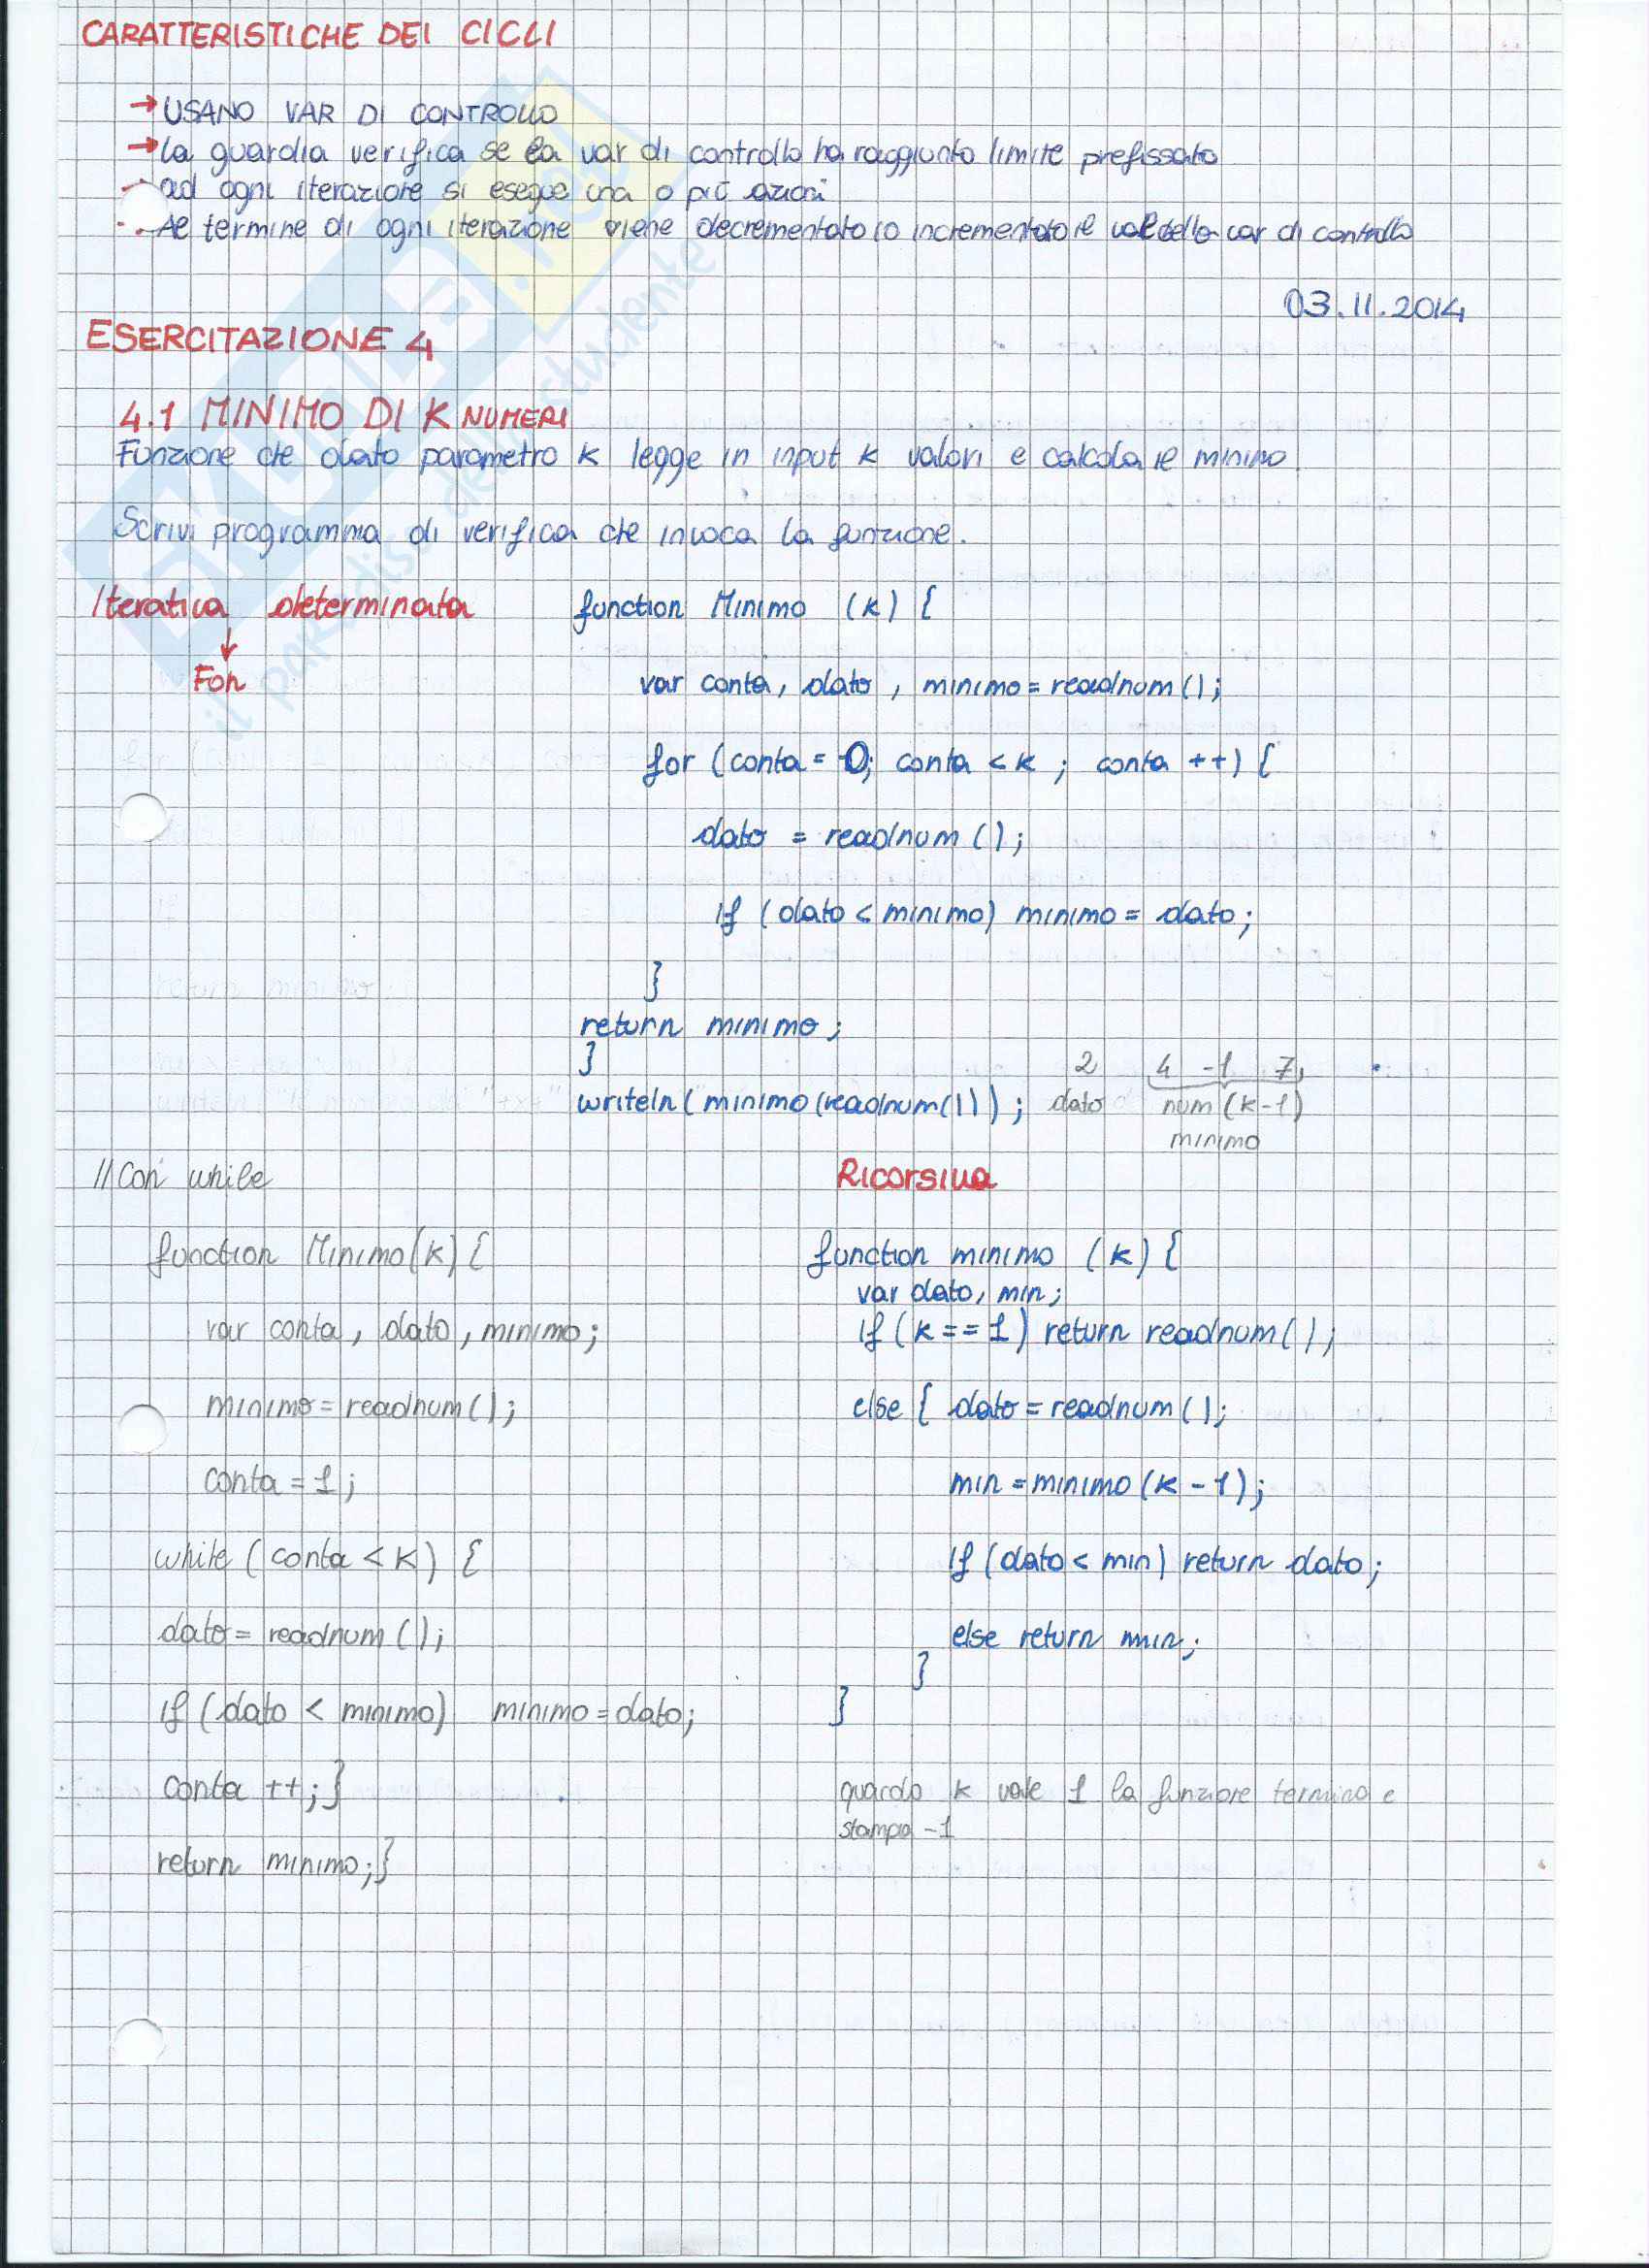 CARATTERISTICHE DEI CICLI
→ USANO VAR DI CONTROLLO
→ la guardia verifica se la var di controllo ha raggiunto limite prefissato
→ ad ogni iterazione si esegue una o più azioni
→ Al termine di ogni iterazione viene decrementato (o incrementato il val della var di controllo
03.11.2014
ESERCITAZIONE 4
4.1 MINIMO DI K NUMERI
Funzione che dato parametro k legge in input k valori e calcola il minimo
Scrivi programma di verifica che invoca la funzione.
Iteratica determinata
↓
For
function Minimo (k) {
var conta, dato, minimo = readnum();
for (conta = 0; conta < k ; conta ++) {
dato = readnum();
if (dato < minimo) minimo = dato;
}
return minimo;
}
writeln(minimo(readnum())); 
2 4 -1 7,
dato num (k-1)
minimo
//Con while
function Minimo(k) {
var conta, dato, minimo;
minimo = readnum();
conta = 1;
while (conta < k) {
dato = readnum();
if (dato < minimo) minimo = dato;
conta ++; }
return minimo; }
Ricorsiva
function minimo (k) {
var dato, min;
if (k == 1) return readnum();
else { dato = readnum();
min = minimo (k - 1);
if (dato < min) return dato;
else return min;
}
}
quando k vale 1 la funzione termina e
stampa -1
SKUOLA.net
il paradiso dello studente